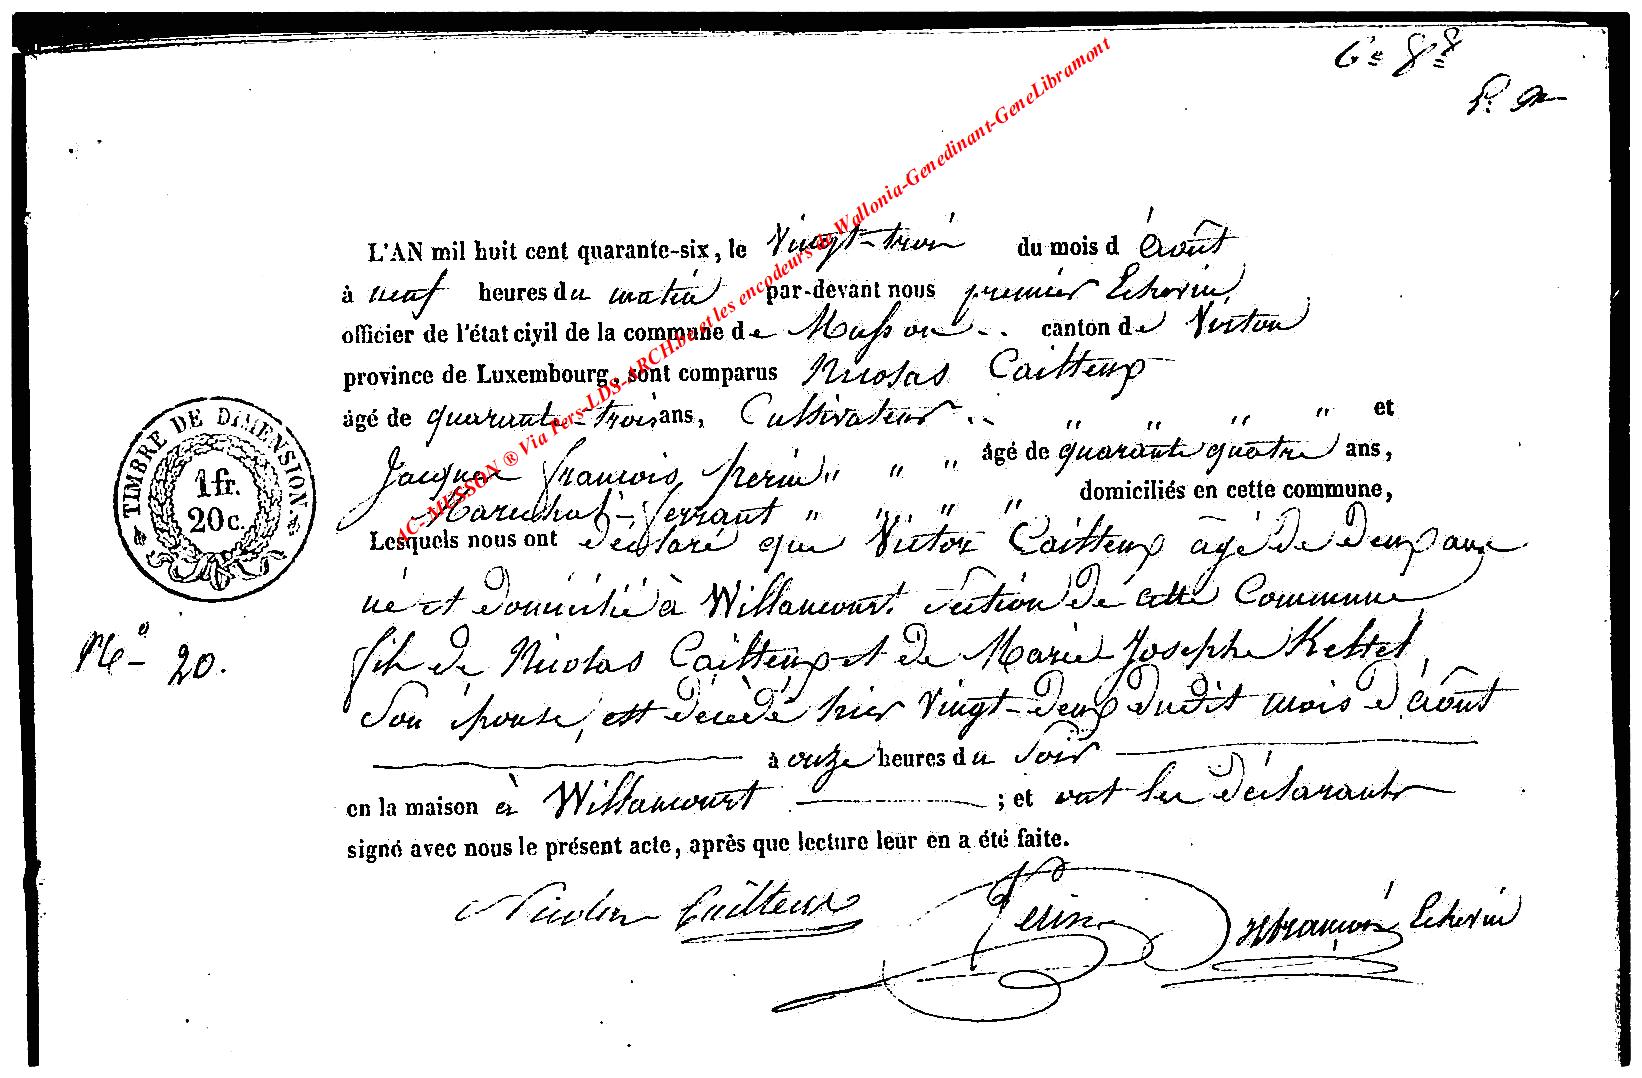 6e 8e
P. m
AC-MUSSON ® Via Pers-LDS-ARCH.be et les encodeurs de Wallonia-Genedinant-GeneLibramont
L'AN mil huit cent quarante-six, le Vingt-trois du mois d'août
à neuf heures du matin par-devant nous premier Echevin,
officier de l'état civil de la commune de Musson canton de Virton
province de Luxembourg, sont comparus Nicolas Cailteux
âgé de quarante-trois ans, Cultivateur " " " " et
Jacques françois perin " " " âgé de quarante quatre ans,
Marechal-ferrant " " " " domiciliés en cette commune,
Lesquels nous ont déclaré que Victor Cailteux âgé de deux ans
né et domicilié à Willancourt section de cette Commune,
fils de Nicolas Cailteux et de Marie Josephe Keltel,
son épouse, est décédé hier Vingt-deux dudit mois d'août
à onze heures du soir
en la maison à Willancourt ; et ont les déclarants
signé avec nous le présent acte, après que lecture leur en a été faite.
TIMBRE DE DIMENSION.
1 fr.
20 c.
No 20.
Nicolas Cailteux Perin Echevin